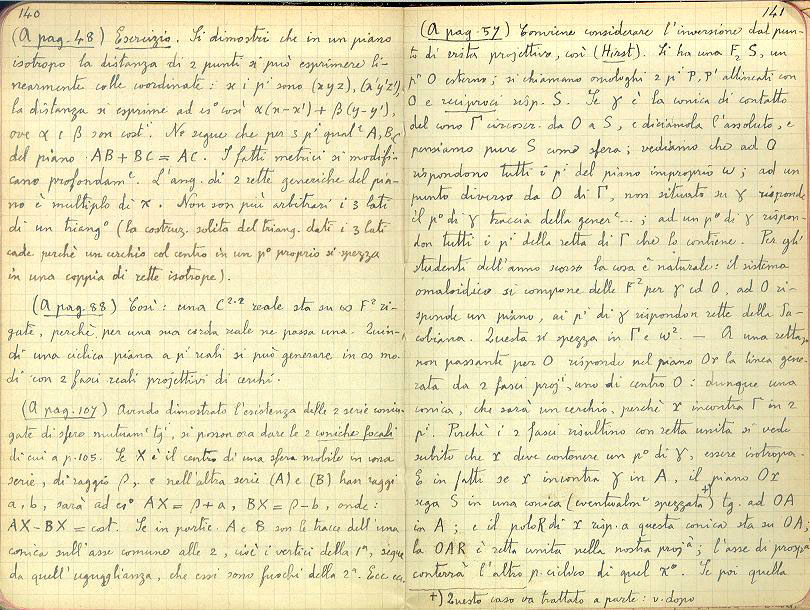 140
(A pag. 48) Esercizio. Si dimostri che in un piano
isotropo la distanza di 2 punti si può esprimere li-
nearmente colle coordinate: se i pⁱ sono (xyz), (x'y'z'),
la distanza si esprime ad es° così α(x-x') + β(y-y'),
ove α e β son costⁱ. Ne segue che per 3 pⁱ qualⁱ A, B, C
del piano AB + BC = AC. I fatti metrici si modifi-
cano profondamᵉ. L'ang. di 2 rette generiche del pia-
no è multiplo di π. Non son più arbitrari i 3 lati
di un triang° (la costruz. solita del triang. dati i 3 lati
cade perchè un cerchio col centro in un p° proprio si spezza
in una coppia di rette isotrope).
(A pag. 88) Così: una C²·² reale sta su ∞ F² ri-
gate, perchè per una sua corda reale ne passa una. Quin-
di una ciclica piana a pⁱ reali si può generare in ∞ mo-
di con 2 fasci reali projettivi di cerchi.
(A pag. 107) Avendo dimostrato l'esistenza delle 2 serie coniu-
gate di sfere mutuamᵉ tgⁱ, si posson ora dare le 2 coniche focali
di cui a p. 105. Se X è il centro di una sfera mobile in una
serie, di raggio ρ, e nell'altra serie (A) e (B) han raggi
a, b, sarà ad es° AX = ρ+a, BX = ρ-b, onde:
AX-BX = cost. Se in partic. A e B son le tracce dell'una
conica sull'asse comune alle 2, cioè i vertici della 1ª, segue
da quell'uguaglianza, che essi sono fuochi della 2ª. Ecc ecc.
141
(A pag. 57) Conviene considerare l'inversione dal pun-
to di vista projettivo, così (Hirst). Si ha una F₂ S, un
p° O esterno; si chiamano omologhi 2 pⁱ P, P' allineati con
O e reciproci risp. S. Se γ è la conica di contatto
del cono Γ circoscr. da O a S, e diciamola l'assoluto, e
pensiamo pure S come sfera; vediamo che ad O
rispondono tutti i pⁱ del piano improprio ω; ad un
punto diverso da O di Γ, non situato su γ risponde
il p° di γ traccia della generᵉ...; ad un p° di γ rispon-
don tutti i pⁱ della retta di Γ che lo contiene. Per gli
studenti dell'anno scorso la cosa è naturale: il sistema
omaloidico si compone delle F² per γ ed O, ad O ri-
sponde un piano, ai pⁱ di γ rispondon rette della Ja-
cobiana. Questa si spezza in Γ e ω². — A una retta r
non passante per O risponde nel piano Or la linea gene-
rata da 2 fasci projⁱ, uno di centro O: dunque una
conica, che sarà un cerchio, perchè r incontra Γ in 2
pⁱ. Perchè i 2 fasci risultino con retta unita si vede
subito che r deve contenere un p° di γ, essere isotropa.
E in fatti se r incontra γ in A, il piano Or
sega S in una conica (eventualmᵉ spezzata)⁺⁾ tg. ad OA
in A; e il polo R di r risp. a questa conica sta su OA;
la OAR è retta unita nella nostra projᵃ; l'asse di prospᵃ
conterrà l'altro p. ciclico di quel π°. Se poi quella
+) Questo caso va trattato a parte: v. dopo